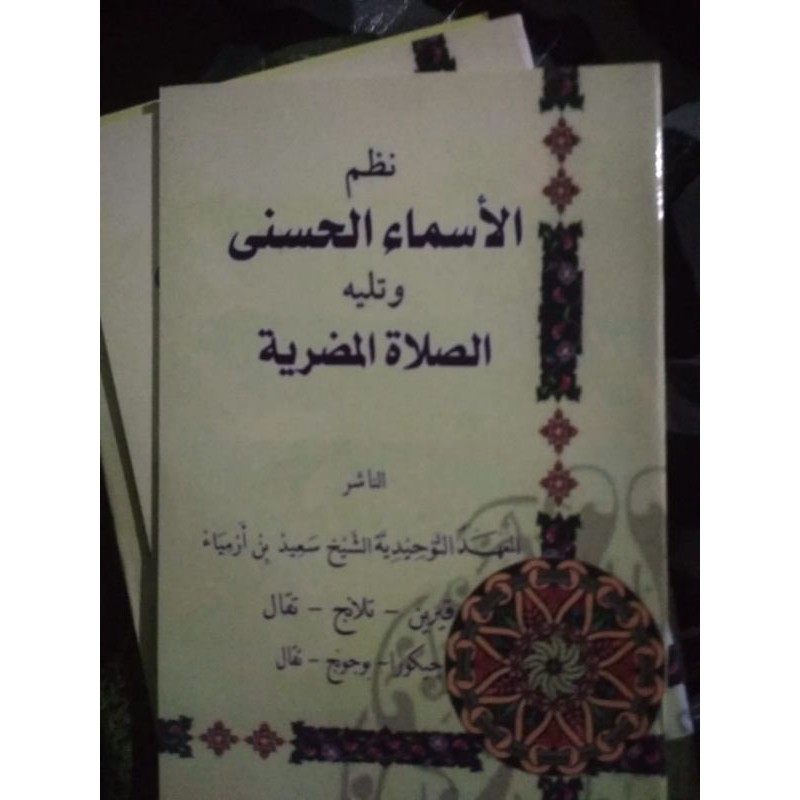 نظم
الأسماء الحسنى
وتليه
الصلاة المضرية
الناشر
المعهد التوحيدية الشيخ سعيد بن أرمياء
فيرين - تلانج - تقال
جيكورا - بوجونج - تقال